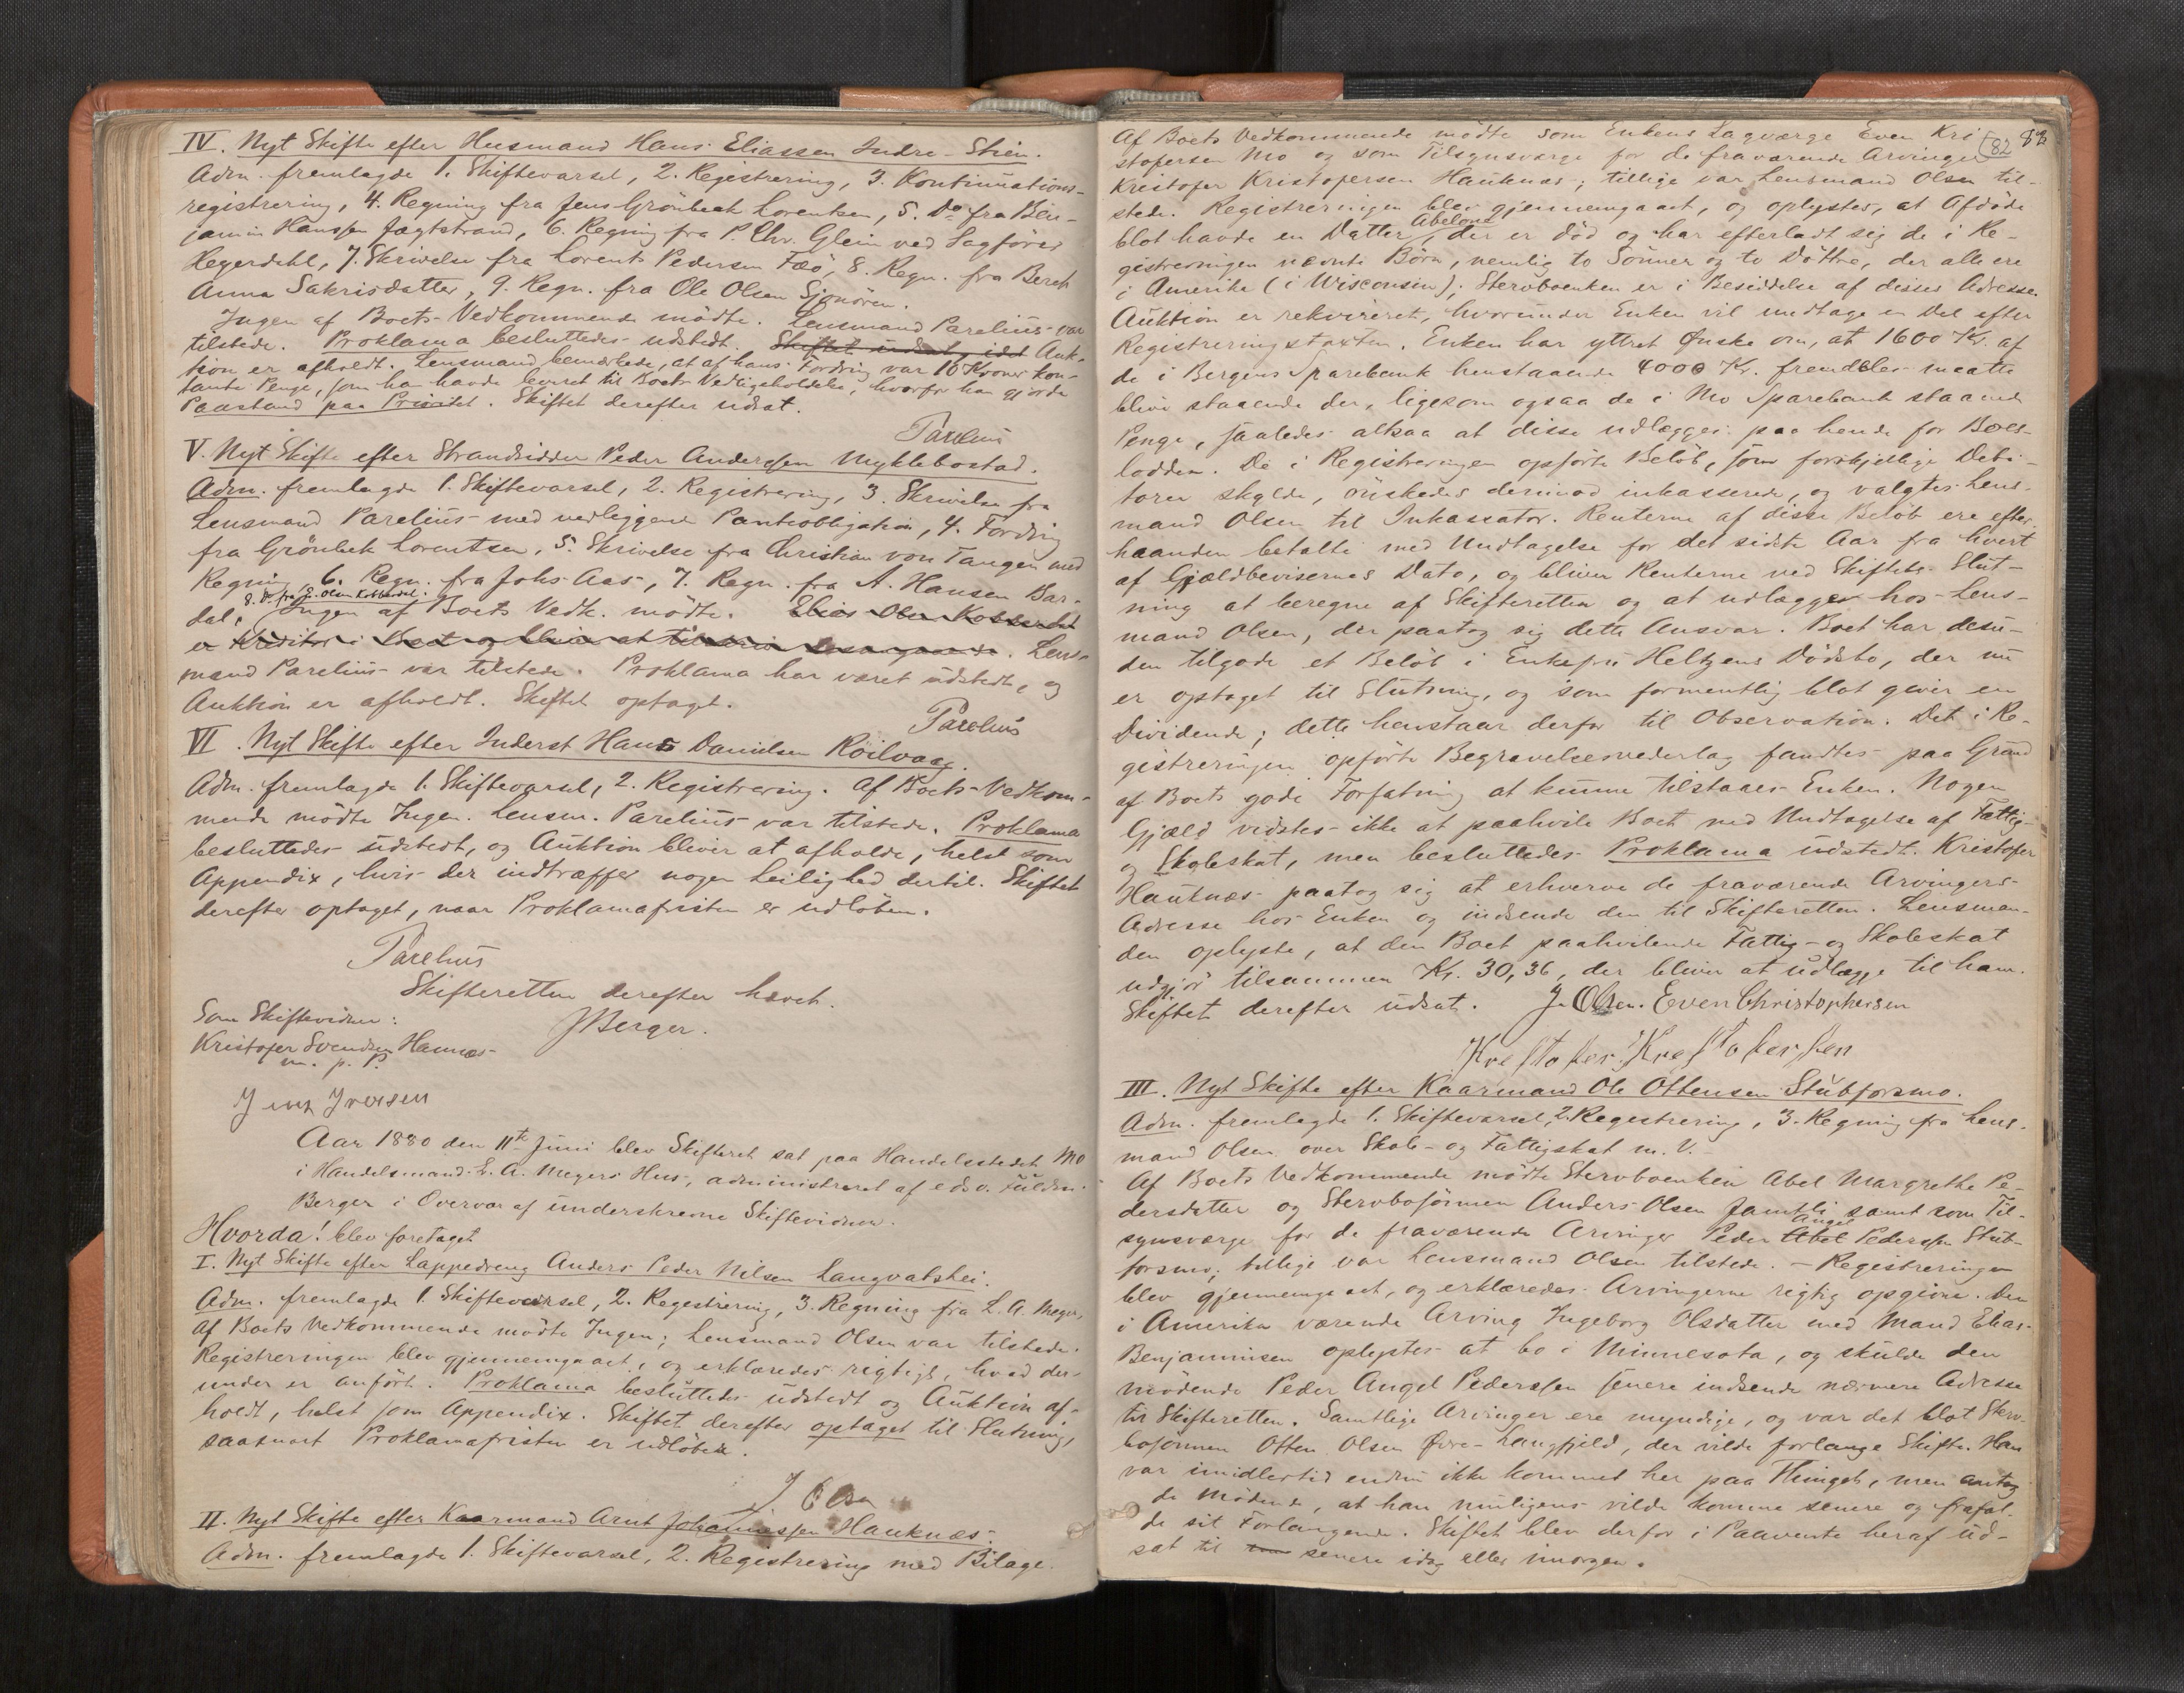 IV. Nyt Skifte efter Husmand Hans Eliassen Indre-Stien.
Adm. fremlagde 1. Skiftevarsel, 2. Registrering, 3. Kontinuations-
registrering, 4. Regning fra Jens Grönbech Lorentsen, 5. Do fra Ben-
jamin Hanssen Jægtstrand, 6. Regning fra P. Chr. Glein ved Sagförer
Hegerdahl, 7. Skrivelse fra Lorents Pedersen Fæö, 8. Regn. fra Berch
Anna Sakrisdatter, 9. Regn. fra Ole Olsen Sjonören.
Ingen af Boets Vedkommende mödte. Lensmand Parelius var
tilstede. Proklama besluttedes udstedt. Skiftet udsatg idet Auk-
tion er afholdt. Lensmand bemærkede, at af hans Fordring var 16 Kroner kon-
tante Penge, som han havde leveret til Boets Vedligeholdelse, hvorfor han gjorde
Paastand paa Prioritet. Skiftet derefter udsat.
Parelius
V. Nyt Skifte efter Strandsidder Peder Anderssen Myklebostad.
Adm. fremlagde 1. Skiftevarsel, 2. Registrering, 3. Skrivelse fra
Lensmand Parelius med vedliggende Panteobligation, 4. Fordring
fra Grönbek Lorentsen, 5. Skrivelse fra Christian von Tangen med
Regning, 6. Regn. fra Johs Aas, 7. Regn. fra A. Hansen Bar-
8. Do fra E. Olsen Kobberdal.
dal. Ingen af Boets Vedk. mödte. Elias Olsen Kobberdal
er Kreditor i Boet og bliver at tilskrive desangaaende. Lens-
mand Parelius var tilstede. Proklama har været udstedt, og
Auktion er afholdt. Skiftet optaget.
Parelius
VI. Nyt Skifte efter Inderst Hans Danielsen Röilvaag.
Adm. fremlagde 1. Skiftevarsel, 2. Registrering. Af Boets Vedkom-
mende mödte Ingen. Lensm. Parelius var tilstede. Proklama
besluttedes udstedt, og Auktion bliver at afholde, helst som
Appendix, hvis der indtræffer nogen Leilighed dertil. Skiftet
derefter optaget, naar Proklamafristen er udlöben.
Parelius
Skifteretten derefter hævet.
Som Skiftevidner:
JBerger.
Kristofer Svendsen Hannæs
m. p. P.
Jens Iversen
Aar 1880 den 11te Juni blev Skifteret sat paa Handelsstedet Mo
i Handelsmand L. A. Meyers Hus, administreret af edsv. Fuldm.
Berger i Overvær af underskrevne Skiftevidner.
Hvorda! blev foretaget
I. Nyt Skifte efter Lappedreng Anders Peder Nilsen Langvatslei.
Adm. fremlagde 1. Skiftevarsel, 2. Registrering, 3. Regning fra L. A. Meyer,
Af Boets Vedkommende mödte Ingen; Lensmand Olsen var tilstede.
Registreringen blev gjennemgaaet, og erklæredes rigtigt, hvad der-
under er anfört. Proklama besluttedes udstedt og Auktion af-
holdt, helst som Appendix. Skiftet derefter optaget til Slutning,
saasnart Proklamafristen er udlöben.
J. Olsen
II. Nyt Skifte efter Kaarmand Arnt Johannessen Hauknæs.
Adm. fremlagde 1. Skiftevarsel, 2. Registrering med Bilage.
82 82
Af Boets Vedkommende mödte som Enkens Lagværge Even Kri-
stofersen Mo og som Tilsynsværge for de fraværende Arvinger
Kristofer Kristofersen Hauknæs; tillige var Lensmand Olsen til-
stede. Registreringen blev gjennemgaaet, og oplystes, at Afdöde
Abelone
blot havde en Datter, der er död og har efterladt sig de i Re-
gistreringen nævnte Börn, nemlig to Sönner og to Döttre, der alle ere
i Amerika (i Wisconsin); Stervboenken er i Besiddelse af disses Adresse.
Auktion er rekvireret, hvorunder Enken vil undtage en Del efter
Registreringstaxten. Enken har yttret Ønske om, at 1600 Kr. af
de i Bergens Sparebank henstaaende 4000 Kr. fremdeles maatte
blive staaende der, ligesom ogsaa de i Mo Sparebank staaende
Penge, saaledes altsaa at disse udlægges paa hende for Boes-
lodden. De i Registreringen opförte Belöb, som forskjellige Debi-
torer skylde, önskedes derimod inkasserede, og valgtes Lens-
mand Olsen til Inkassator. Renterne af disse Belöb ere efter-
haanden betalte med Undtagelse for det sidste Aar fra hvert
af Gjældbevisernes Dato, og bliver Renterne ved Skiftets Slut-
ning at beregne af Skifteretten og at udlægges hos Lens-
mand Olsen, der paatog sig dette Ansvar. Boet har desu-
den tilgode et Belöb i Enkefru Heltzens Dödsbo, der nu
er optaget til Slutning, og som formentlig blot giver en
Dividende; dette henstaar derfor til Observation. Det i Re-
gistreringen opförte Begravelsesvederlag fandtes paa Grund
af Boets gode Forfatning at kunne tilstaaes Enken. Nogen
Gjæld vidstes ikke at paahvile Boet med Undtagelse af Fattig-
og Skoleskat, men besluttedes Proklama udstedt. Kristofer
Hauknæs paatog sig at erhverve de fraværende Arvingers
Adresse hos Enken og indsende den til Skifteretten. Lensman-
den oplyste, at den Boet paahvilende Fattig- og Skoleskat
udgjör tilsammen Kr. 30,36, der bliver at udlægge til ham.
Skiftet derefter udsat. J. Olsen. Even Christophersen
Krestofer Krestofersen
III. Nyt Skifte efter Kaarmand Ole Ottensen Stubforsmo.
Adm. fremlagde 1. Skiftevarsel, 2. Registrering, 3. Regning fra Lens-
mand Olsen over Skole- og Fattigskat m. V.
Af Boets Vedkommende mödte Stervboenken Abel Margrethe Pe-
dersdatter og Stervbosönnen Anders Olsen Jamtli samt som Til-
Angel
synsværge for de fraværende Arvinger Peder Abel Pederssen Stub-
forsmo; tillige var Lensmand Olsen tilstede. – Registreringen
blev gjennemgaaet, og erklæredes Arvingerne rigtig opgivne. Den
i Amerika værende Arving Ingeborg Olsdatter med Mand Elias
Benjaminsen oplystes at bo i Minnesota, og skulde den
mödende Peder Angel Pederssen senere indsende nærmere Adresse
til Skifteretten. Samtlige Arvinger ere myndige, og var det blot Sterv-
bosönnen Otten Olsen Øvre-Langfjeld, der vilde forlange Skifte. Han
var imidlertid endnu ikke kommet her paa Thinget, men antog
de Mödende, at han muligens vilde komme senere og frafal-
de sit Forlangende. Skiftet blev derfor i Paavente heraf ud-
sat til senere idag eller imorgen.